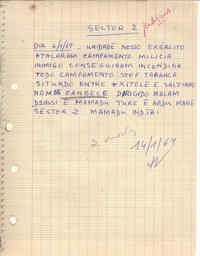 SECTOR 2
DIA 6/1/69 - UNIDADE NOSSO EXERCITO
ATACARAM CAMPAMENTO MILICIA
INIMIGO CONSEGUIRAM INCENDIAR
TODO CAMPAMENTO
SITUADO ENTRE XITOLE E SALTINHO
NOME CANBECE DIRIGIDO MALAM
E MAMADU TURE E
SECTOR 2 MAMADU INDJAI
14/1/69